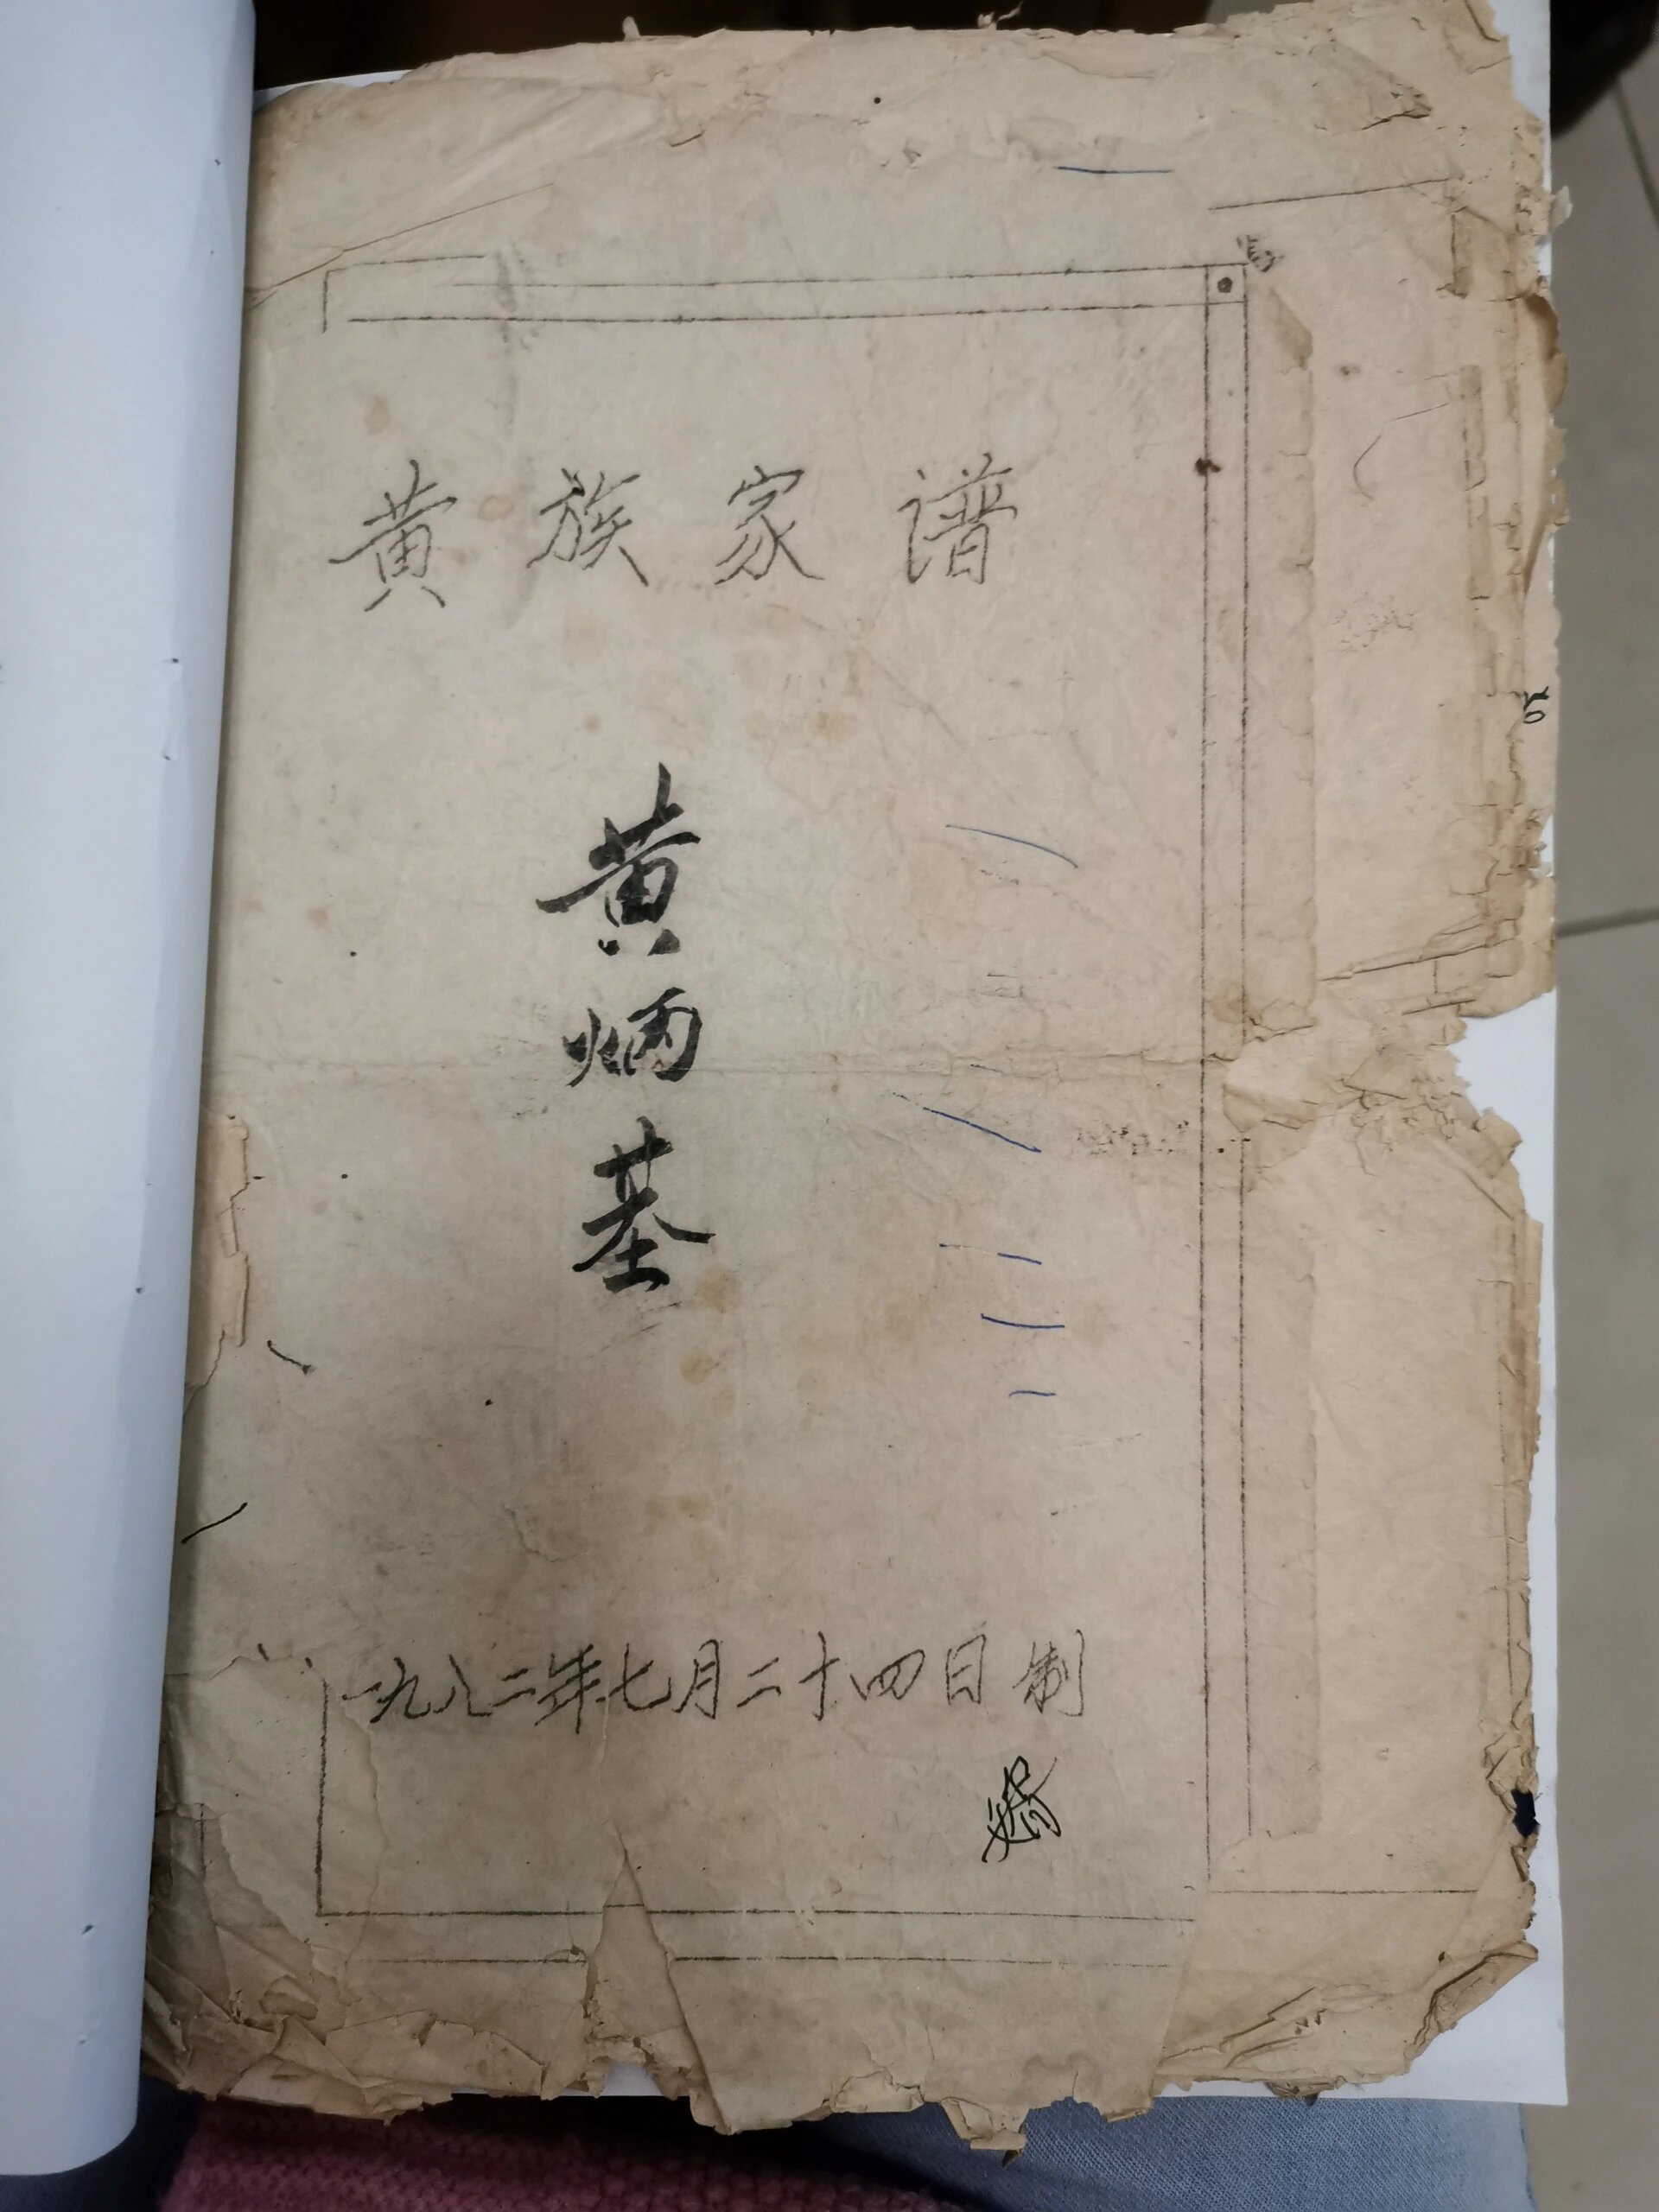 黄族家谱
黄炳基
一九八二年七月二十四日制